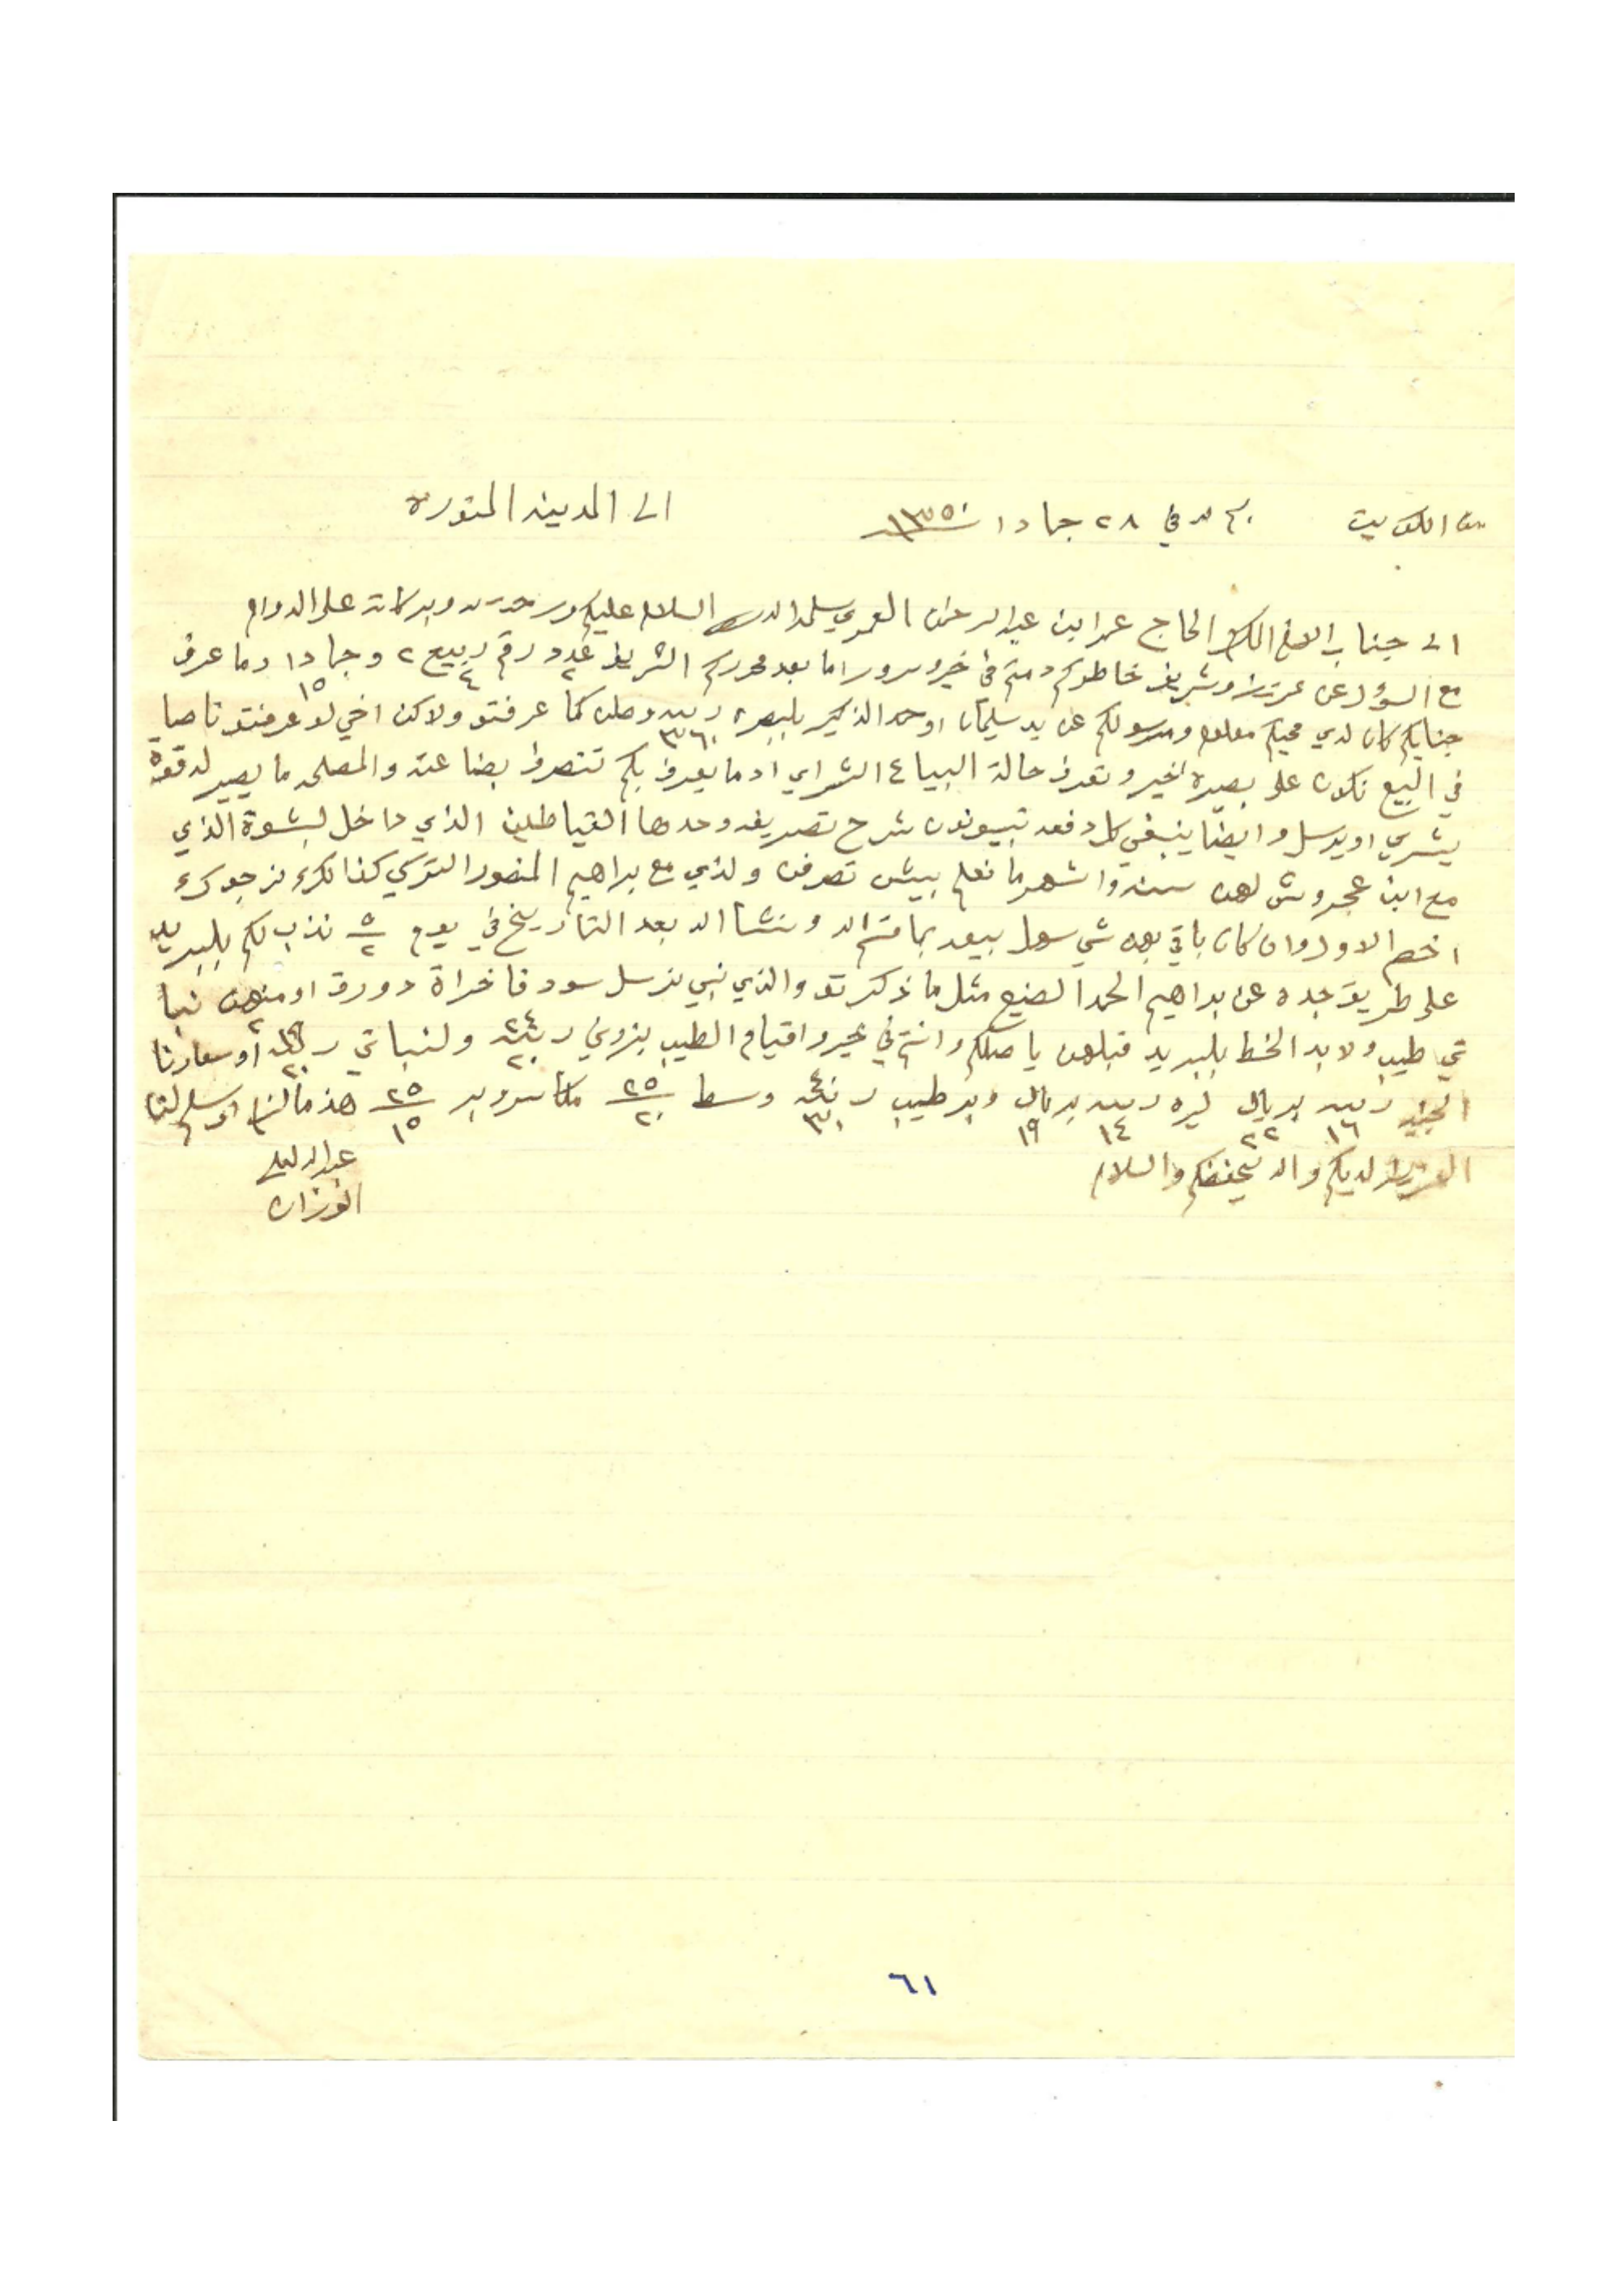 من الكويت بسم الله في ٢٨ جمادا ١ ١٣٥٠ الى المدينه المنوره
الى جناب الاخ المكرم الحاج عمر ابن عبدالرحمن العمري سلمه الله السلام عليكم ورحمة الله وبركاته على الدوام
مع السؤل عن عزيز وشريف خاطركم دمتم في خير وسرور اما بعد محرركم الشريف عدد ٢ رقم ٤ ربيع ٢ و ١٥ جمادا ١ وما عرف
جنابكم كان لدي محبكم معلوم ومرسولكم عن يد سليمان او حمد الذكير بلبصره ربيه ٣٦٠ وصلن كما عرفتو ولاكن اخي لو عرفتو ناصيا
في البيع نكون على بصيره اخير ونعرف حالة البيا ع الشراي او ما يعرف بكم تنصرف بضاعته والمصلحه ما يصير لدقعه
يشري او يرسل وايضا ينبغي كل دفعه تبيونون شرح تصريفه وحدها القياطين الذي داخل لبشوة الذي
مع ابن عجروش لهن سنه واشهر ما نعلم بيش تصرفن ولذي مع براهيم المنصور التركي كذالك نرجوك
اخصم الاول وان كان باقي بهن شي سهل بيعه بما قسم الله ونشا الله بعد التاريخ في يوم ٥/٢ نذب لكم بلبريد
على طريق جده عن براهيم الحمد الصنيع مثل ما ذكرتو والذي نبي نرسل سود فاخراة دورق او منهن ٢ نبا
تي طيب ولابد الخط بلبريد قبلهن ياصلكم وانتم في خير واقيام الطيب بزوني ربيه ٢٤/٢٠ ولنباتي ربيه او سعارنا
الجنيه ربيه ١٦ بريال ٢٢ ليره ربيه ١٤ بريال ١٩ وبر طيب ربيه ٤/٣٠ وسط ٢٥/٢٠ وبر ٢٥/١٥ هذ مالزم او سلم لنا
العزيز لديكم والله يحفضكم والسلام
عبدالله العلي
الفوزان
٦١